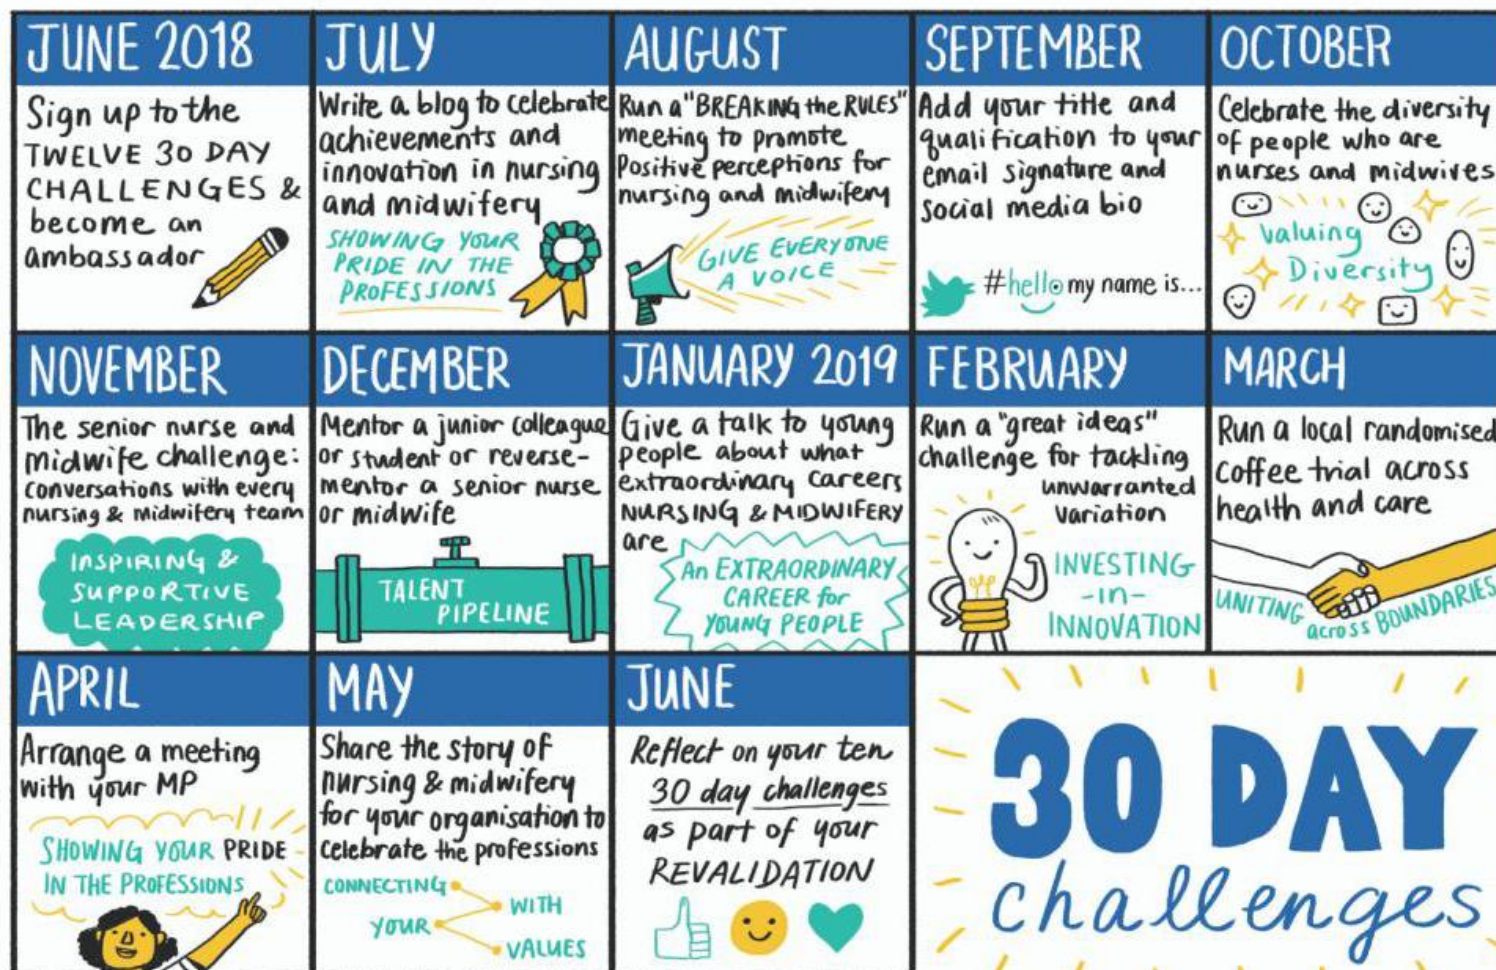 JUNE 2018
Sign up to the
TWELVE 30 DAY
CHALLENGES &
become an
ambassador
JULY
Write a blog to celebrate
achievements and
innovation in nursing
and midwifery
SHOWING YOUR
PRIDE IN THE
PROFESSIONS
AUGUST
Run a "BREAKING the RULES"
meeting to promote
Positive perceptions for
nursing and midwifery
GIVE EVERYONE
A VOICE
SEPTEMBER
Add your title and
qualification to your
email signature and
social media bio
#hello my name is...
OCTOBER
Celebrate the diversity
of people who are
nurses and midwives
Valuing
Diversity
NOVEMBER
The senior nurse and
midwife challenge:
conversations with every
nursing & midwifery team
INSPIRING &
SUPPORTIVE
LEADERSHIP
DECEMBER
Mentor a junior colleague
or student or reverse-
mentor a senior nurse
or midwife
TALENT
PIPELINE
JANUARY 2019
Give a talk to young
people about what
extraordinary careers
NURSING & MIDWIFERY
are
An EXTRAORDINARY
CAREER for
YOUNG PEOPLE
FEBRUARY
Run a "great ideas"
challenge for tackling
unwarranted
variation
INVESTING
-IN-
INNOVATION
MARCH
Run a local randomised
coffee trial across
health and care
UNITING
across BOUNDARIES
APRIL
Arrange a meeting
with your MP
SHOWING YOUR PRIDE
IN THE PROFESSIONS
MAY
Share the story of
nursing & midwifery
for your organisation to
celebrate the professions
CONNECTING
YOUR
WITH
VALUES
JUNE
Reflect on your ten
30 day challenges
as part of your
REVALIDATION
30 DAY
challenges